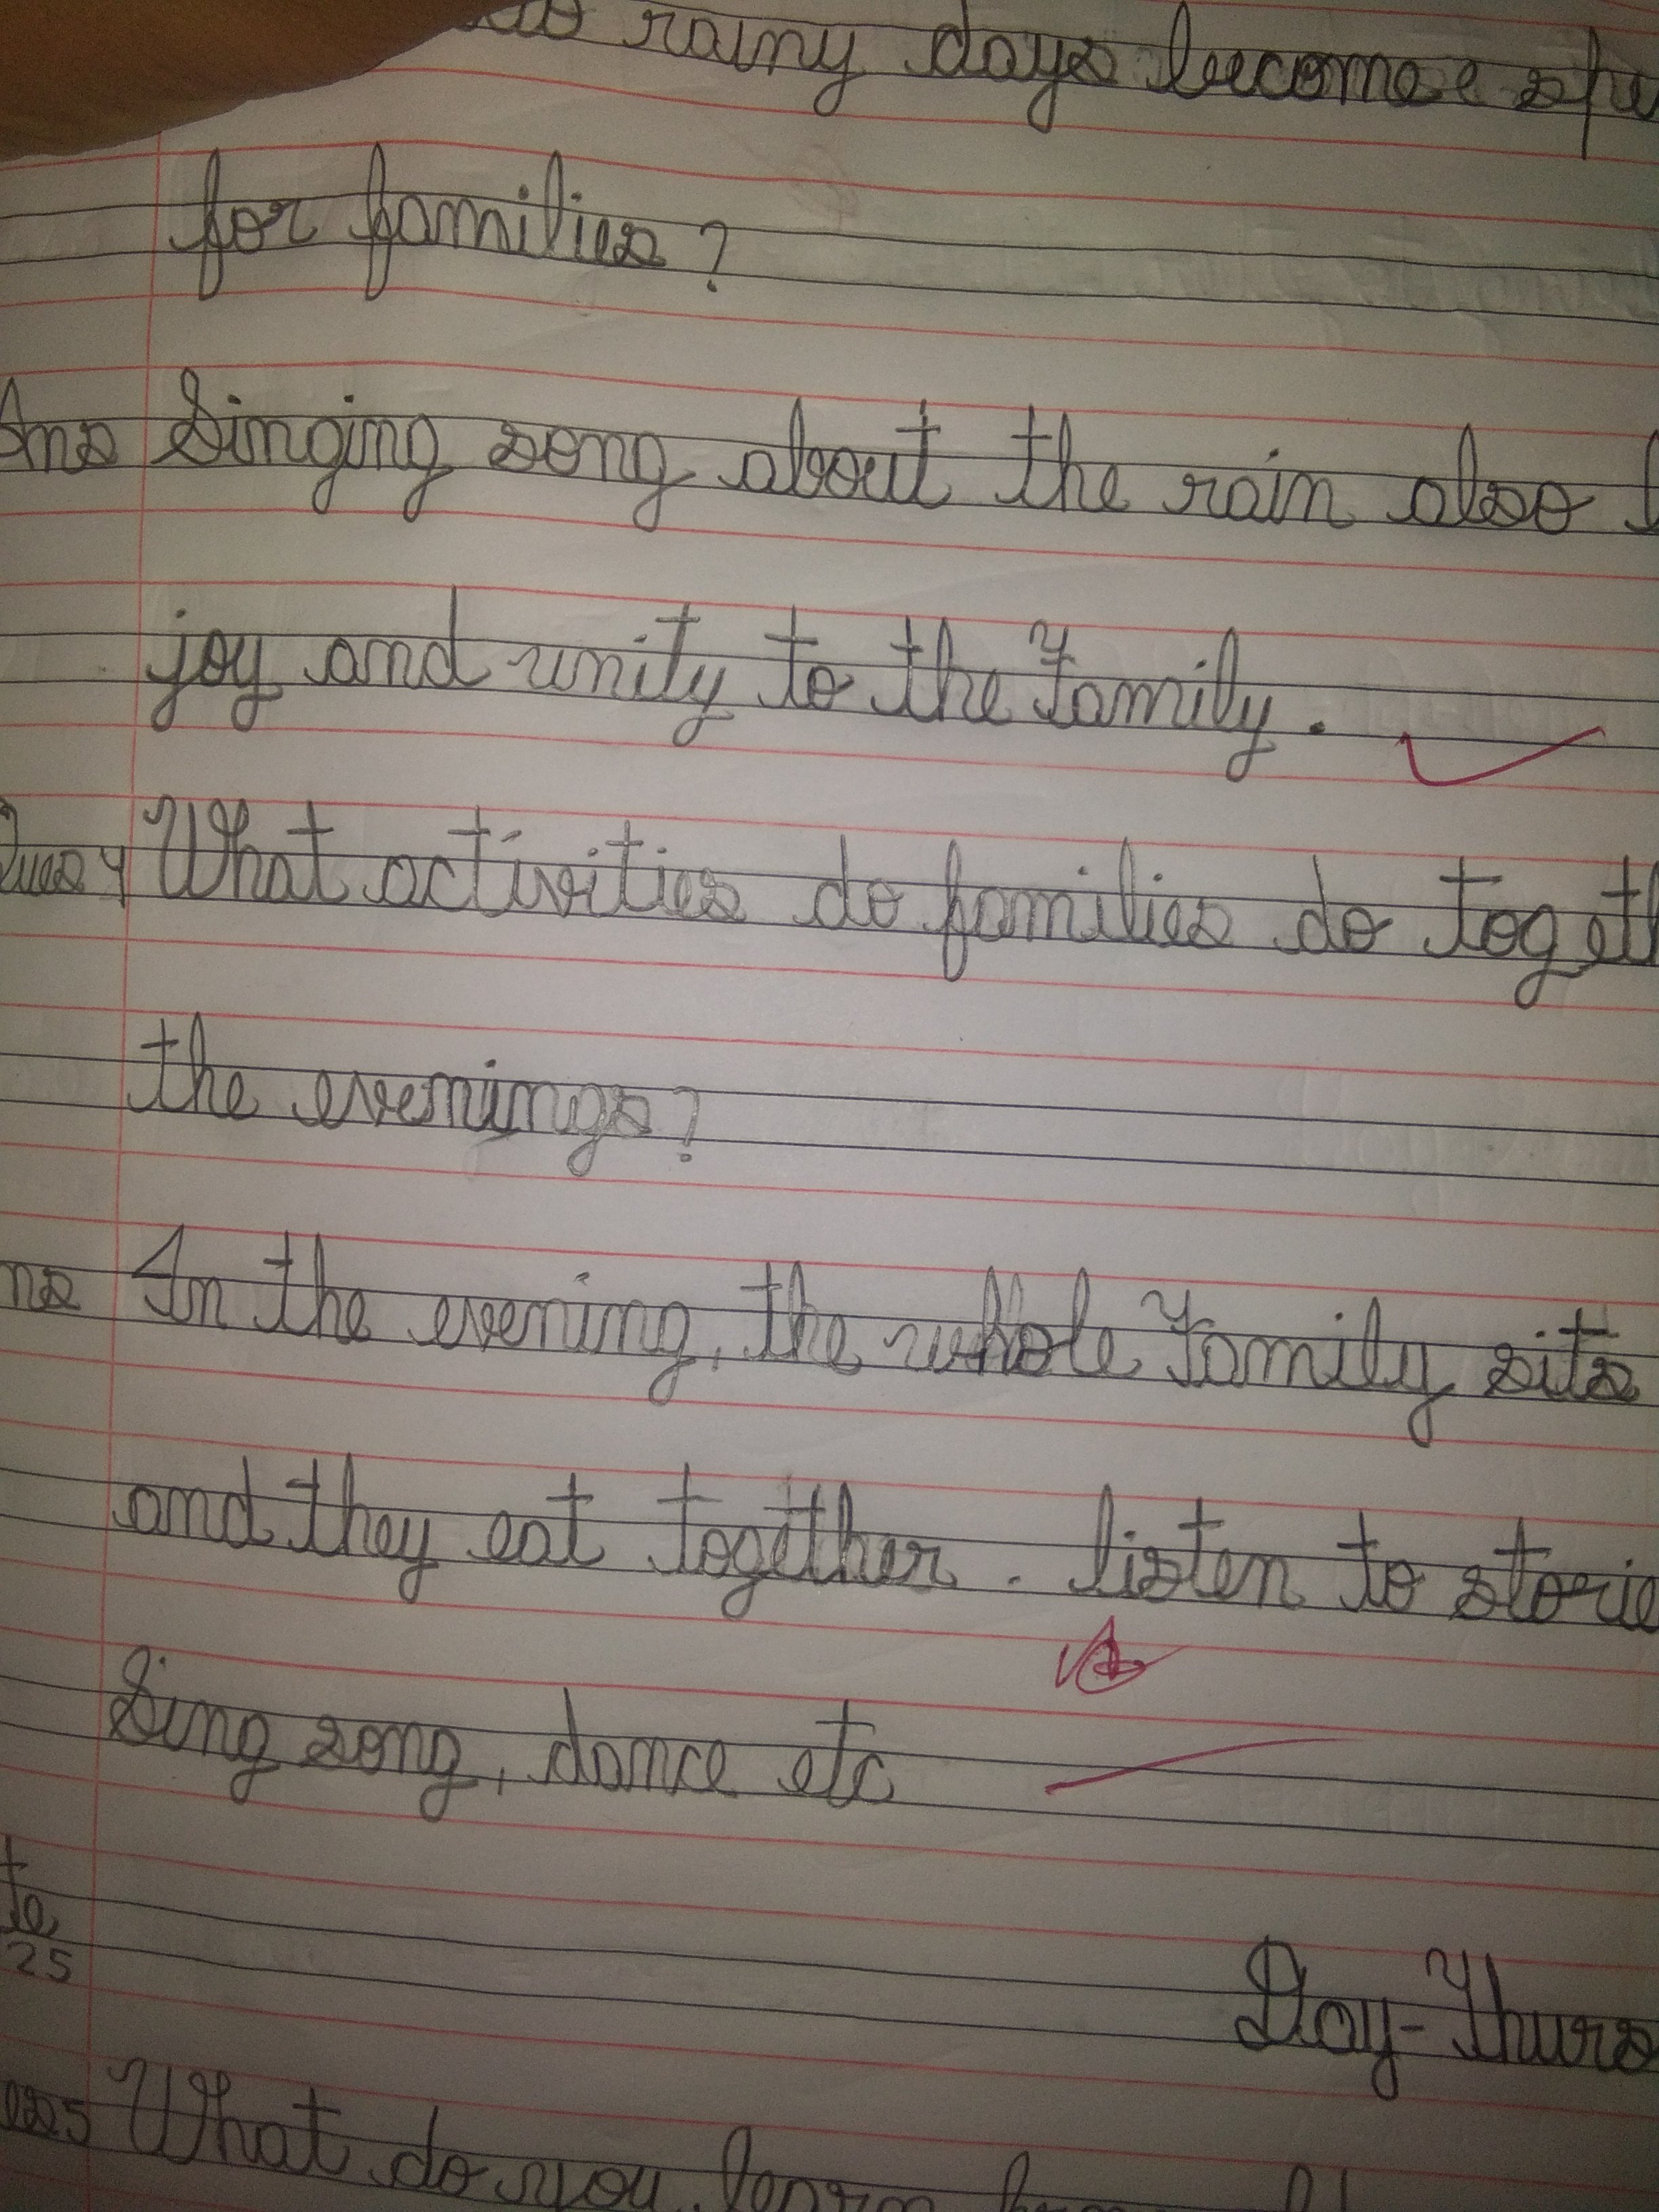 do rainy days become spe
for families?
Ans Singing song about the rain also b
joy and unity to the Family.
Ques 4 What activities do families do togeth
the evenings?
ns In the evening, the whole Family sits
and they eat together. listen to storie
Sing song, dance etc
te
25
Day-Thurs
es5 What do you learn